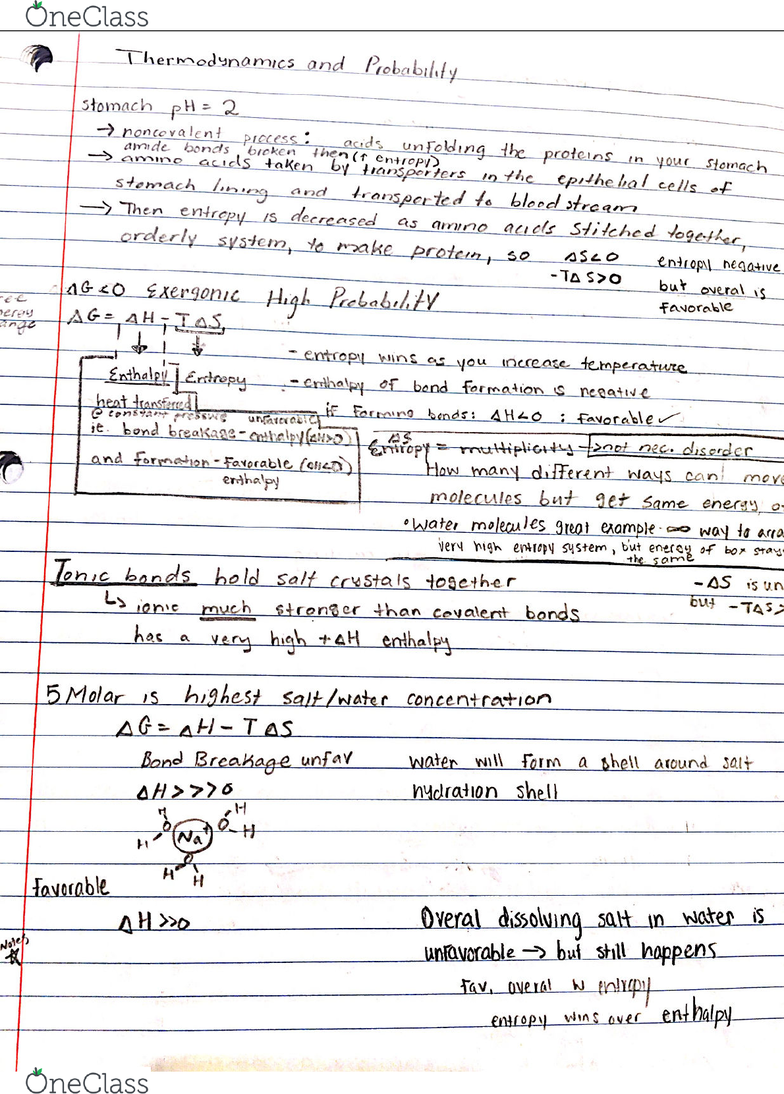 OneClass
Thermodynamics and Probability
stomach pH = 2
→ noncovalent process: acids unfolding the proteins in your stomach
amide bonds broken then (↑ entropy)
→ amino acids taken by transporters in the epithelial cells of
stomach lining and transported to blood stream
→ Then entropy is decreased as amino acids stitched together,
orderly system, to make protein, so ΔS<0 entropy negative
-TΔS>0 but overal is
favorable
ΔG<0 Exergonic High Probability
ΔG = ΔH - TΔS
- entropy wins as you increase temperature
Enthalpy Entropy - enthalpy of bond formation is negative
heat transferred
@ constant pressure unfavorable if forming bonds: ΔH<0 : favorable ✓
ie. bond breakage - enthalpy (ΔH>0)
and formation - Favorable (ΔH<0)
enthalpy
ΔS
Entropy = multiplicity → not nec. disorder
How many different ways can I move
molecules but get same energy
• Water molecules great example - ∞ way to arra
very high entropy system, but energy of box stays
the same
Ionic bonds hold salt crystals together
↳ ionic much stronger than covalent bonds
has a very high +ΔH enthalpy
-ΔS is un
but -TΔS>
5 Molar is highest salt/water concentration
ΔG = ΔH - TΔS
Bond Breakage unfav water will form a shell around salt
ΔH>>>0 hydration shell
H O H O H Na+ H O H
Favorable
ΔH>>0 Overal dissolving salt in water is
Note: unfavorable → but still happens
fav. overal w entropy
entropy wins over enthalpy
OneClass